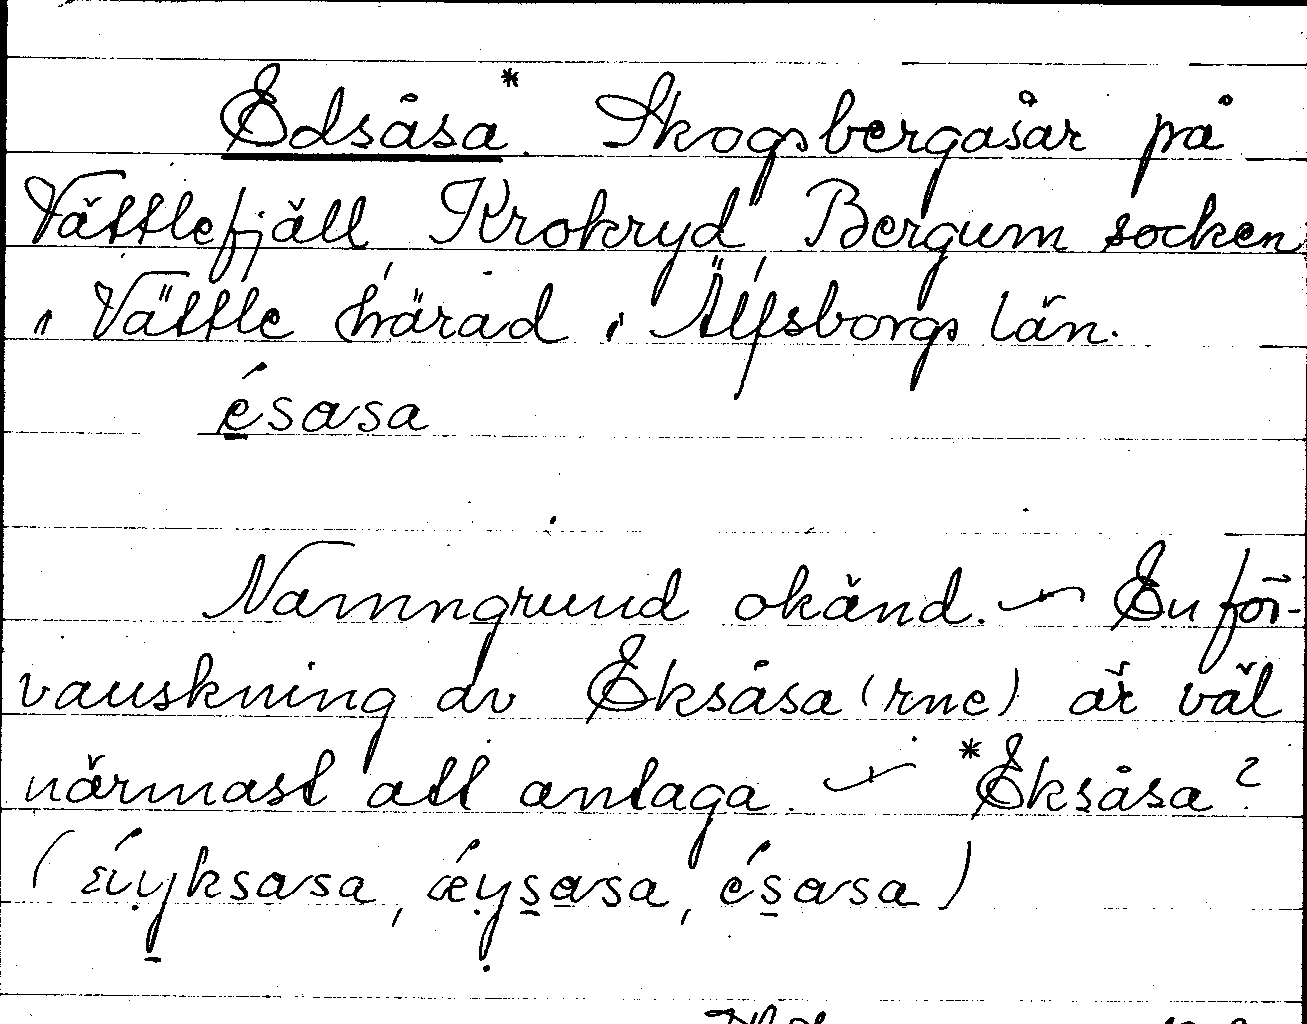 Edsåsa*. Skogsbergåsar på
Vättlefjäll, Krokryd, Bergum socken
i Vättle härad i Älfsborgs län.
ésasa
Namngrund okänd. — En för-
vanskning av Eksåsa(rne) är väl
närmast att antaga. — *Eksåsa?
(ǽyksasa, ǽysasa, ésasa)